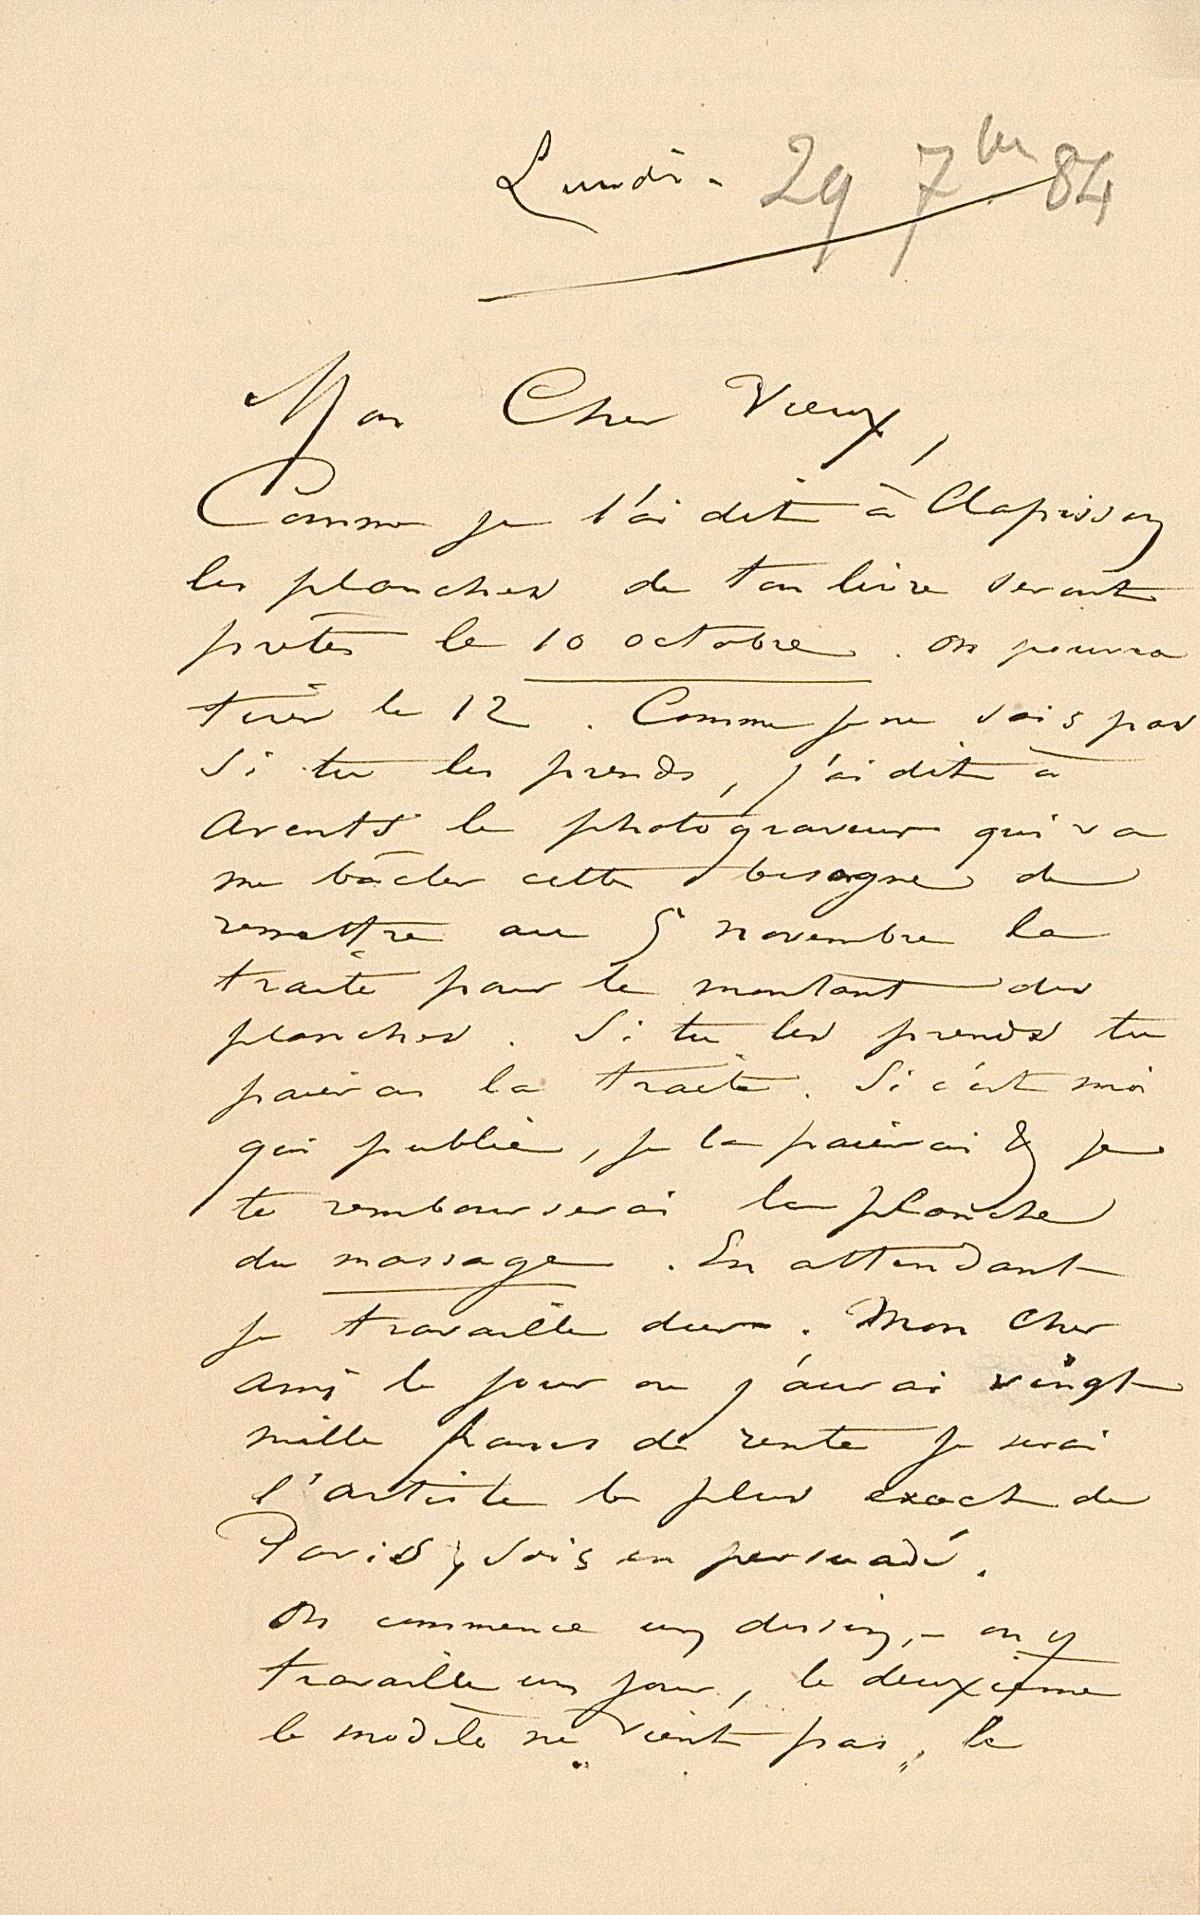 Lundi - 29 7bre 84
Mon Cher Vieux,
Comme je l'ai dit à Clapisson
les planches de ton livre seront
prêtes le 10 octobre. on pourra
tirer le 12. Comme je ne sais pas
si tu les prends, j'ai dit à
Arents le photograveur qui va
me bâcler cette besogne de
remettre au 5 novembre la
traite pour le montant des
planches. Si tu les prends tu
paieras la traite. Si c'est moi
qui publie, je la paierai & je
te rembourserai la planche
du massage. En attendant
je travaille dur. Mon cher
ami le jour ou j'aurai vingt
mille francs de rente je serai
l'artiste le plus exact de
Paris, sois en persuadé.
On commence un dessin, - on y
travaille un jour, le deuxième
le modèle ne vient pas, le